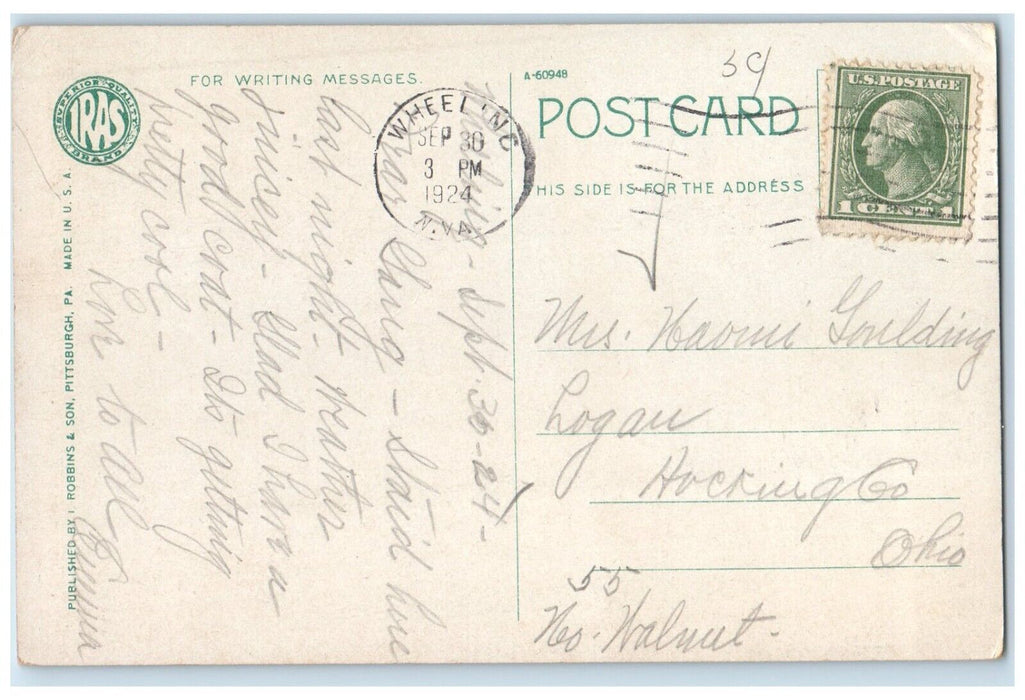 FOR WRITING MESSAGES.
SUPERIOR QUALITY
IRAS
BRAND
PUBLISHED BY I. ROBBINS & SON, PITTSBURGH, PA. MADE IN U.S.A.
A-60948
POST CARD
THIS SIDE IS FOR THE ADDRESS
U.S. POSTAGE
1 CENT 1
WHEELING
SEP 30
3 PM
1924
W.VA.
59
Sept. 30-24-
Dear - Staid here
last night. Weather
nicey - Glad I have a
good coat - Its getting
pretty cool -
Love to all
Emma
Mrs. Naomi Goulding
Logan
Hocking Co
Ohio
55
No. Walnut.